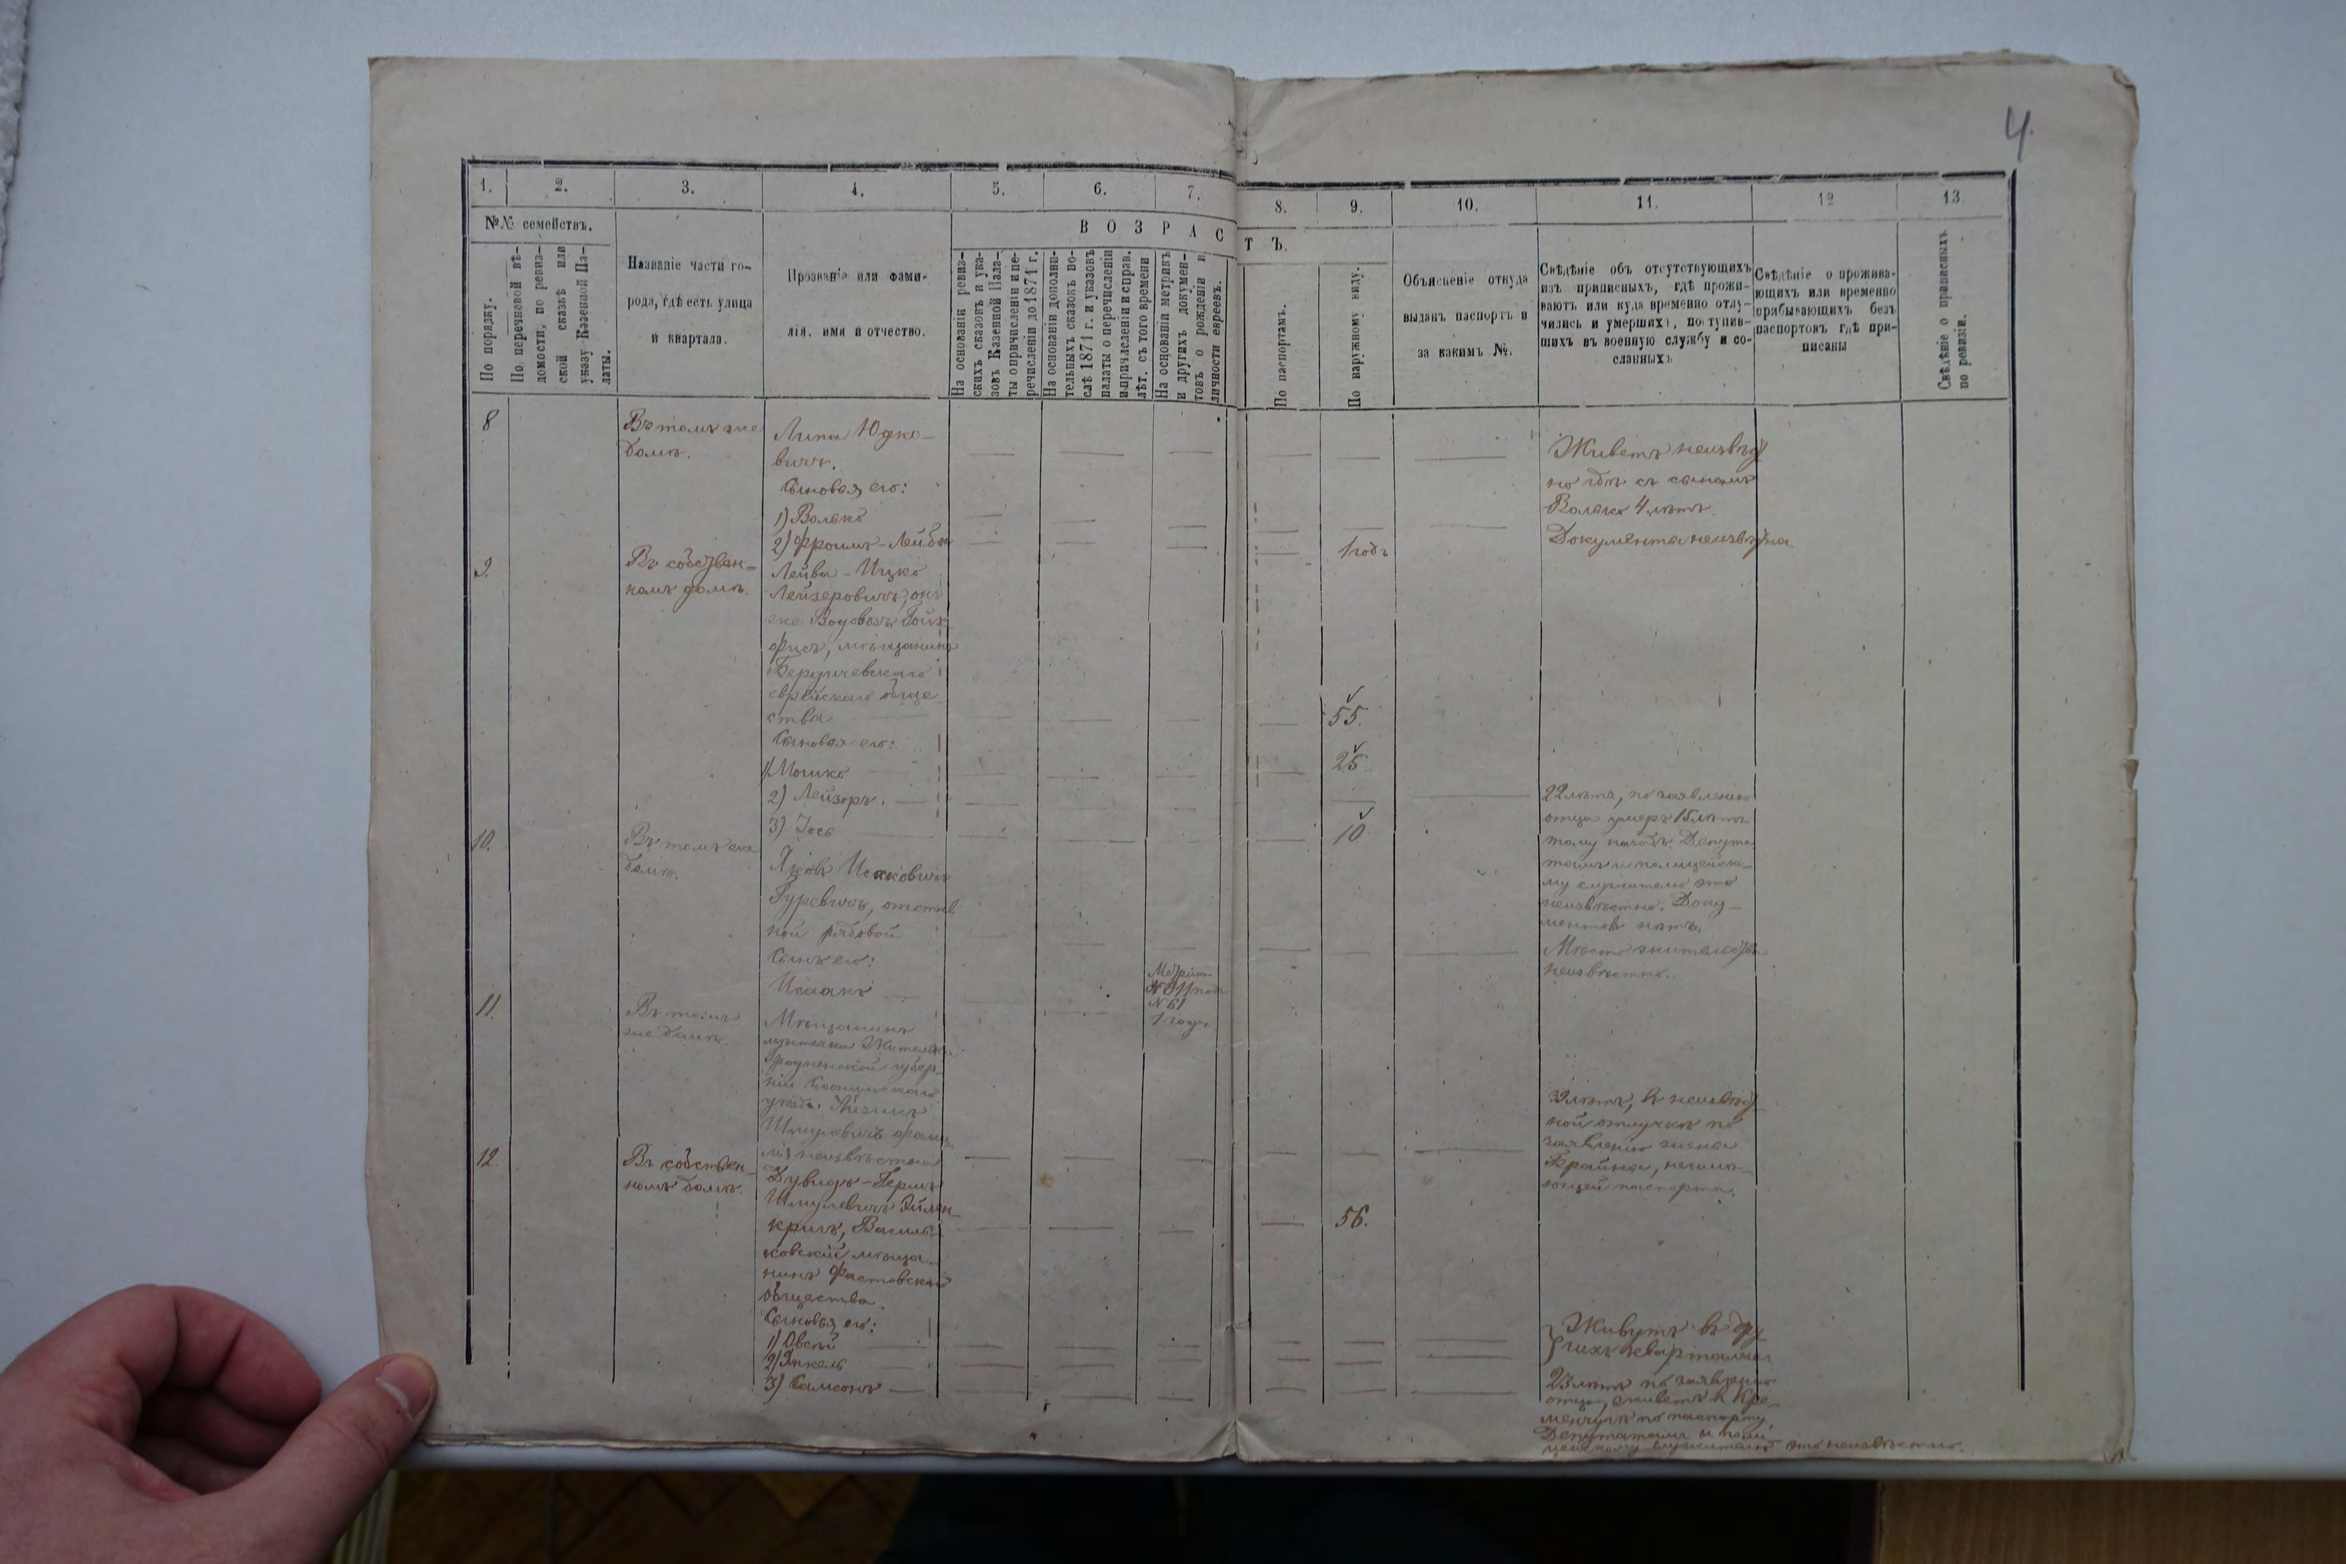 4.
1. 2. 3. 4. 5. 6. 7. 8. 9. 10. 11. 12 13.
№№ семействъ.
По порядку.
По перечневой вѣ-
домости, по ревиз-
ской сказкѣ или
указу Казенной Па-
латы.
Названіе части го-
рода, гдѣ есть улица
и квартала.
Прозваніе или фами-
лія, имя и отчество.
ВОЗРАСТЪ.
На основаніи ревиз-
скихъ сказокъ и ука-
зовъ Казенной Пала-
ты о причисленіи и пе-
речисленіи до 1871 г.
На основаніи дополни-
тельныхъ сказокъ по-
слѣ 1871 г. и указовъ
палаты о перечисленіи
и причисленіи и справ.
лѣт. съ того времени
На основаніи метрикъ
и другихъ докумен-
товъ о рожденіи и
личности евреевъ.
По паспортамъ.
По наружному виду.
Объясненіе откуда
выданъ паспортъ и
за какимъ №.
Свѣдѣніе объ отсутствующихъ
изъ приписныхъ, гдѣ прожи-
ваютъ или куда временно отлу-
чились и умершихъ, поступив-
шихъ въ военную службу и со-
сланныхъ
Свѣдѣніе о прожива-
ющихъ или временно
прибывающихъ безъ
паспортовъ гдѣ при-
писаны
Свѣдѣніе о приписныхъ
по ревизіи.
8
Въ томъ же
домѣ.
Липа Юдко-
вичъ.
Сыновья его:
1) Волько
2) Фроимъ-Лейба
1 годъ
Живетъ неизвѣст
но гдѣ съ сыномъ
Волько 4 лѣтъ.
Документа неизвѣстна
9.
Въ собствен-
номъ домѣ.
Лейба-Ицко
Лейзеровичъ, онъ
же Водовозъ
мѣщанинъ
Бердичевскаго
еврейскаго обще
ства
55.
Сыновья его:
1) Мошко
25.
2) Лейзоръ.
22 лѣтъ, по заявленію
отца умеръ 15 лѣтъ
тому назадъ. Депута
тамъ и полицейско-
му служителю это
неизвѣстно. Доку-
ментовъ нѣтъ.
3) Іось
10
10.
Въ томъ же
домѣ.
Яковъ Исаковичъ
Гуревичъ, отстав
ной рядовой
Мѣсто жительства
неизвѣстно.
Сынъ его:
Исаакъ
№ 61
1 годъ
11.
Въ томъ
же домѣ.
Мѣщанинъ
мѣстечка
Гродненской губер-
ніи
уѣзда
Шмулевичъ фами
лія неизвѣстна
32 лѣтъ, въ неизвѣст
ной отлучкѣ по
заявленію жены
Брайны, неимѣ-
ющей паспорта.
12.
Въ собствен-
номъ домѣ.
Дувидъ-Гершъ
Шмулевичъ
Василь-
ковскій мѣща
нинъ Фастовскаго
общества.
56.
Сыновья его:
1) Овсѣй
2) Янкель
Живутъ въ дру
гихъ кварталахъ
3) Самсонъ
23 лѣтъ по заявленію
отца, живетъ въ Кре-
менчугѣ по паспорту
Депутатамъ и поли-
цейскому служителю это неизвѣстно.